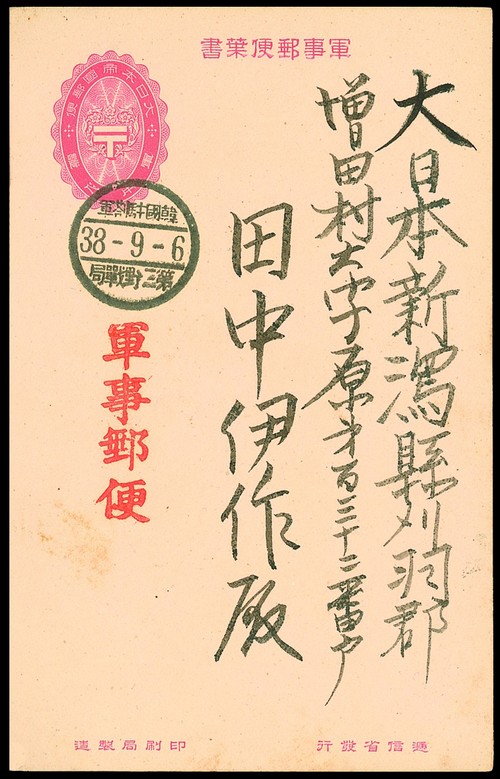 軍事郵便葉書
大日本帝國郵便
大日本新潟縣刈羽郡
増田村大字原才百三十二番戸
田中伊作殿
韓國駐剳軍
38-9-6
第三野戰局
軍事郵便
遞信省發行
印刷局製造